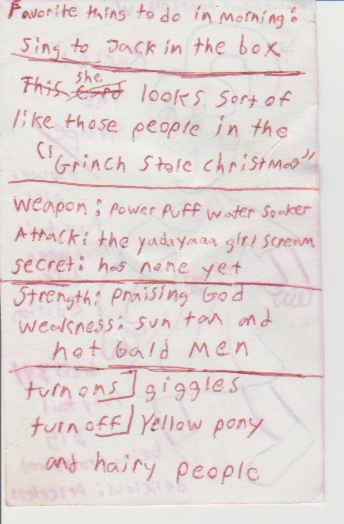 Favorite thing to do in morning:
Sing to Jack in the box
This Card she looks sort of
like those people in the
"Grinch Stole Christmas"
Weapon: Power Puff Water Soaker
Attack: the yadayaaa girl scream
Secret: has none yet
Strength: Praising God
Weakness: sun tan and
hot bald men
turn ons] giggles
turn off] Yellow pony
and hairy people